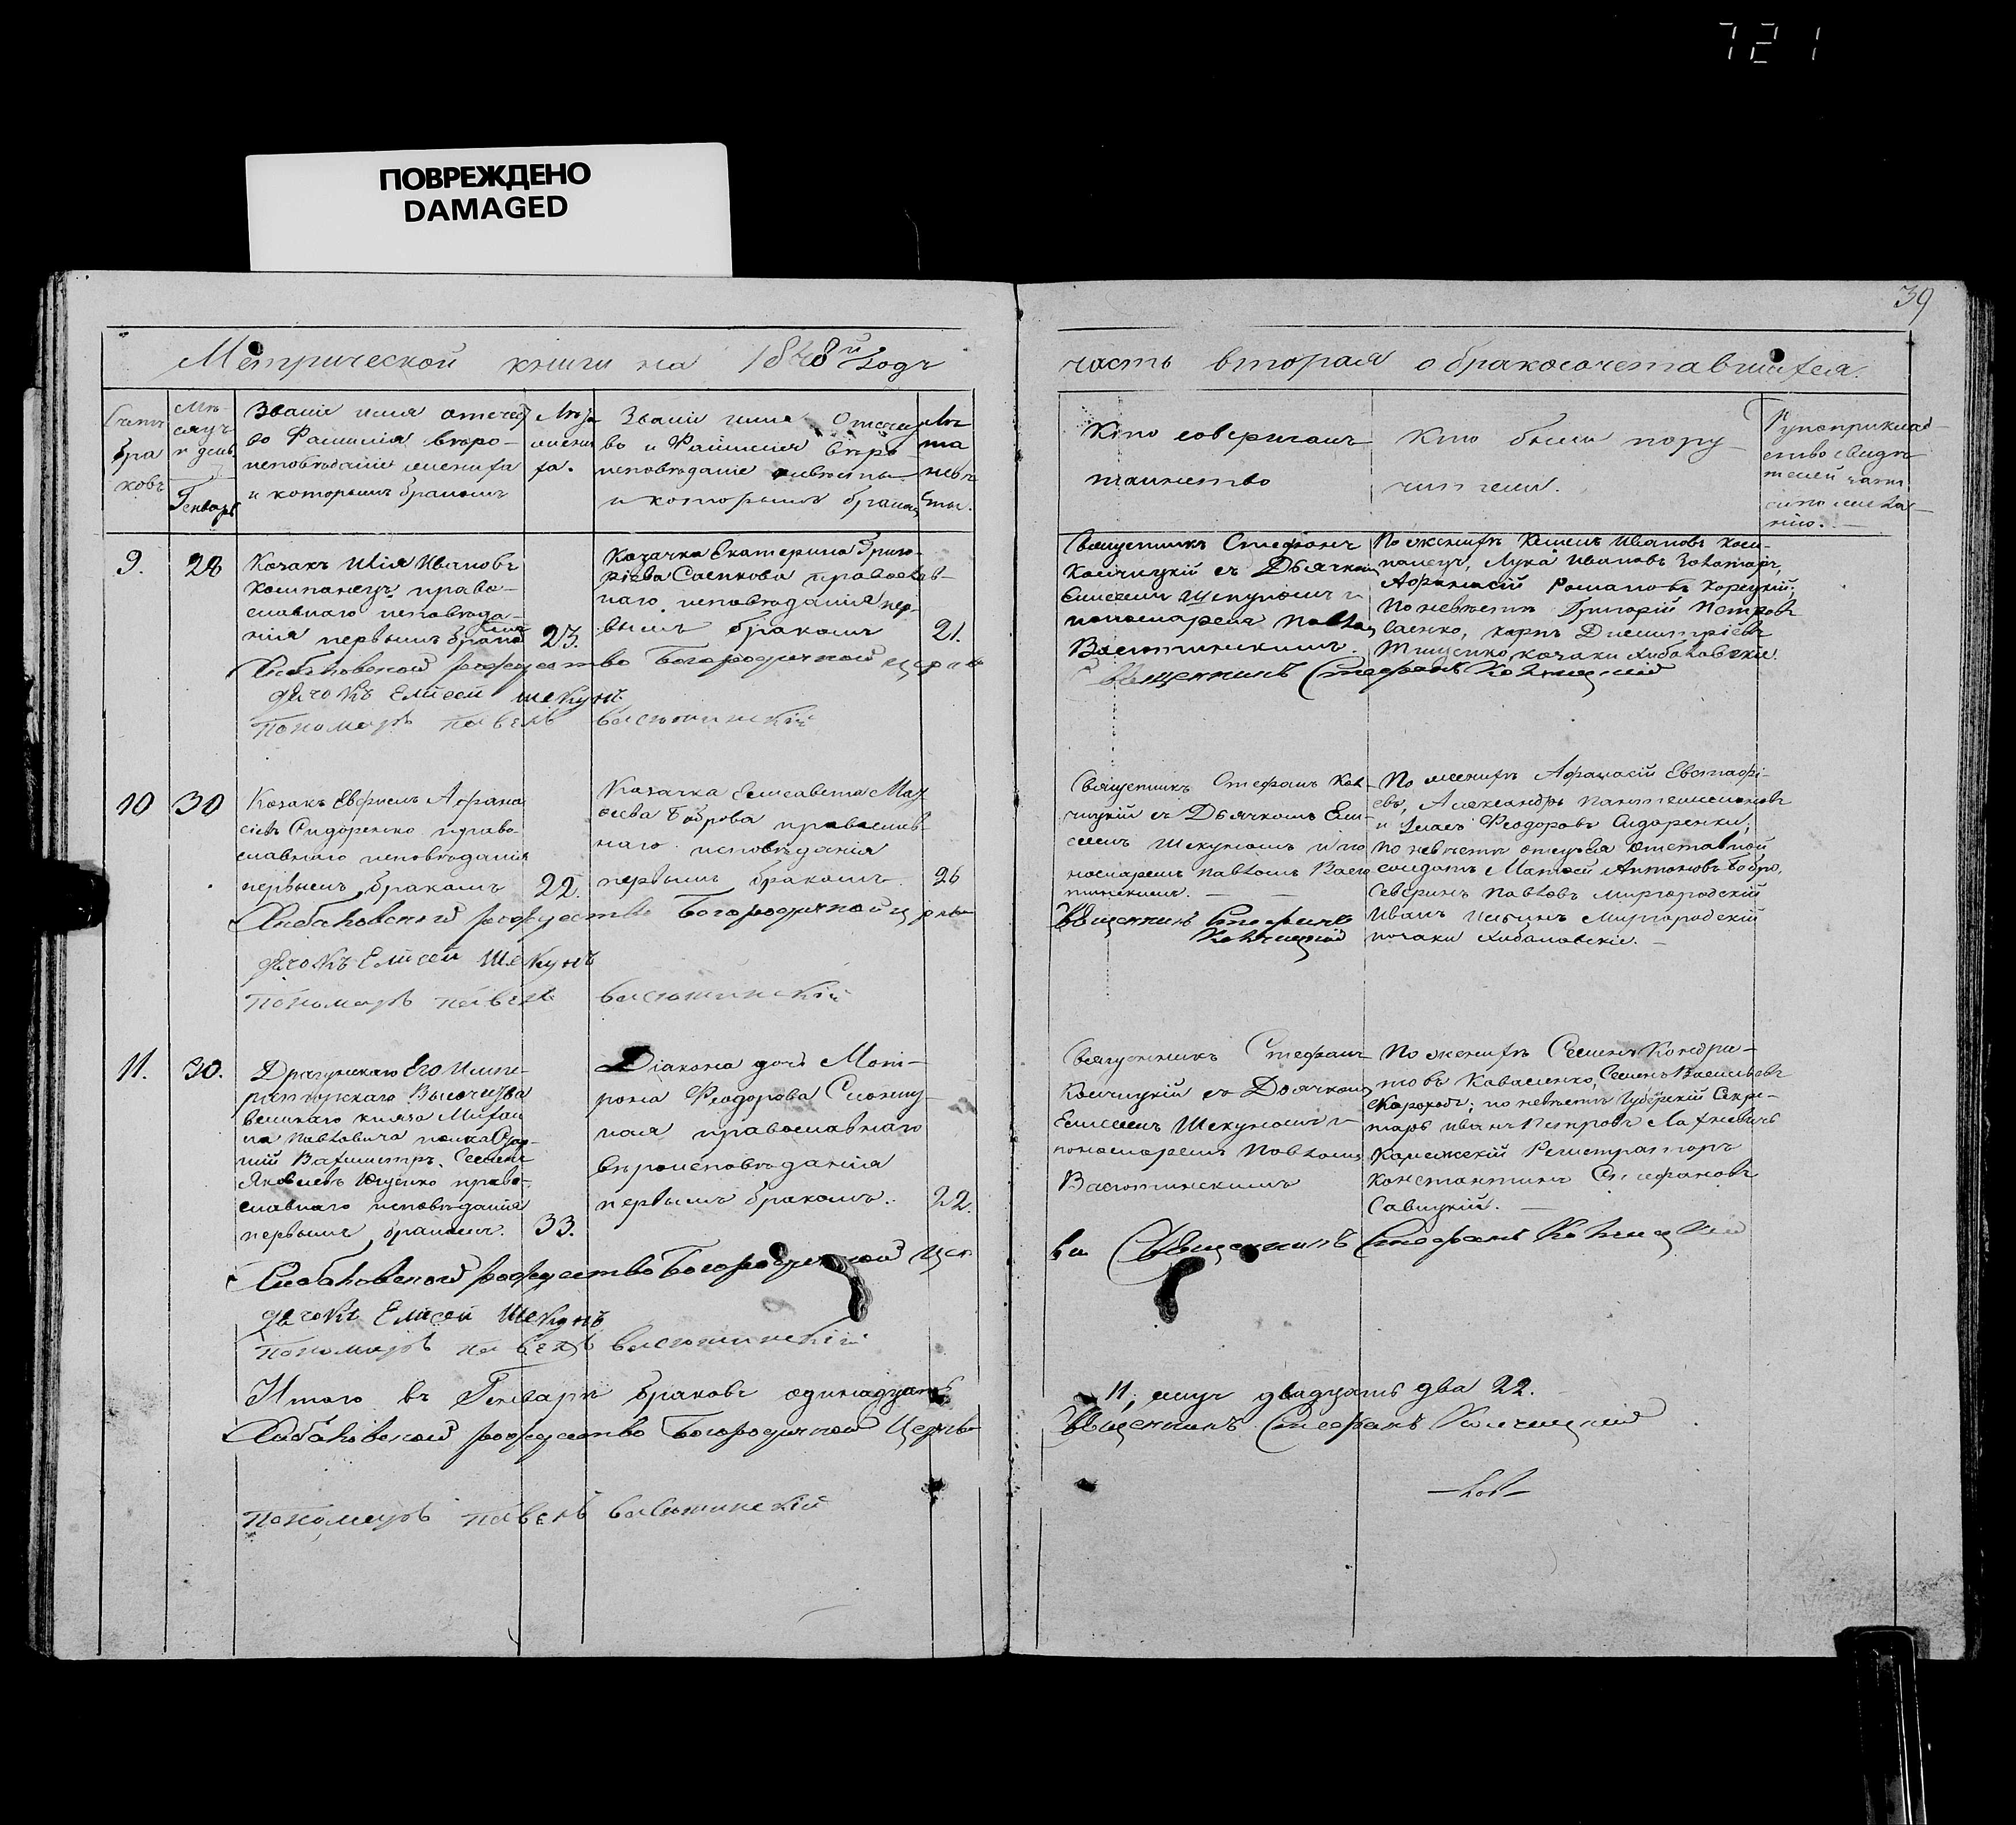 721
ПОВРЕЖДЕНО
DAMAGED
39
Метрической книги на 1848й Годъ
часть вторая о бракосочетавшихся.
Счетъ
бра
ковъ
Мѣ-
сяцъ
и день
Генварь
Званіе имя отечес
во Фамилія вѣро-
исповѣданіе жениха
и которымъ бракомъ
Лѣта
жени
ха.
Званіе имя Отечес
во и Фамилія вѣро
исповѣданіе невѣсты
и которымъ бракомъ
Лѣ
та
невѣ
сты.
Кто совершалъ
таинство
Кто были пору-
чители.
Рукоприклад-
ство свидѣ
телей
по жела-
нію.
9.
28
Козакъ Илія Ивановъ
Компанецъ право-
славнаго исповѣда-
нія первымъ бракомъ
23.
Козачка Екатерина Григо-
ріева Саенкова православ-
наго исповѣданія пер-
вымъ бракомъ
21.
Священникъ Стефанъ
Колчицкій съ Дьячкомъ
Елисеемъ Шекуномъ и
пономаремъ Павлом
Васютинскимъ.
По женихѣ Ивановъ Ком-
панецъ, Лука Ивановъ
Афанасій Романовъ Корецкій;
По невѣстѣ Григорій Петровъ
Саенко, Карпъ Димитріевъ
Тищенко козаки Хибаловскіе.
Хибаловской рождество Богородичной церкви
Священникъ Стефанъ Колчицкій
дячокъ Елисей шекунъ.
Пономарь павелъ васютинскій
10
30
Козакъ Евфимъ Афана
сіевъ Сидоренко право-
славнаго исповѣданія
первымъ бракомъ
22.
Козачка Елисавета Мат
ѳеева Боброва православ-
наго исповѣданія
первымъ бракомъ
26
Священникъ Стефанъ Кол-
чицкій съ Дьячкомъ Ели-
сеемъ Шекуномъ и по
номаремъ Павломъ Васю
тинскимъ.
По женихѣ Афанасій Евстафі-
евъ, Александръ Пантелеимоновъ
и Ѳеодоровъ Сидоренки;
по невѣстѣ отставной
солдатъ Матѳей Антоновъ Бобро,
Северинъ Павловъ Миргородскій
Иванъ Ильинъ Миргородскій
козаки Хибаловскіе.
Хибаловской рождество Богородичной церкви
Священникъ Стефанъ
Колчицкій
дячокъ Елисей Шекунъ
Пономарь павелъ васютинскій
11.
30.
Драгунскаго Его Импе-
раторскаго Высочества
великаго князя Михаи
ла Павловича полка
шій Вахмистръ Семенъ
Яковлевъ Юценко право-
славнаго исповѣданія
первымъ бракомъ.
33.
Діакона дочь Мот-
рона Ѳеодорова
православнаго
вѣроисповѣданія
первымъ бракомъ.
22.
Священникъ Стефанъ
Колчицкій съ Дьячкомъ
Елисеемъ Шекуномъ и
пономаремъ Павломъ
Васютинскимъ
По женихѣ Семенъ Кондра-
товъ Коваленко, Семенъ Васильевъ
Скороходъ; по невѣстѣ Губерскій Секре-
таръ Иванъ Петровъ Лахневичъ
Колежскій Регистраторъ
Константинъ Стефановъ
Савицкій.
Хибаловской рождество Богородичной церк
ви Священникъ Стефанъ Колчицкій
дячокъ Елисей Шекунъ
Пономарь павелъ васютинскій
Итого въ Генварѣ браковъ одинадцать
11, лицъ двадцать два 22.
Хибаловской рождество Богородичной Церкви
Священникъ Стефанъ Колчицкій
Пономарь павелъ васютинскій